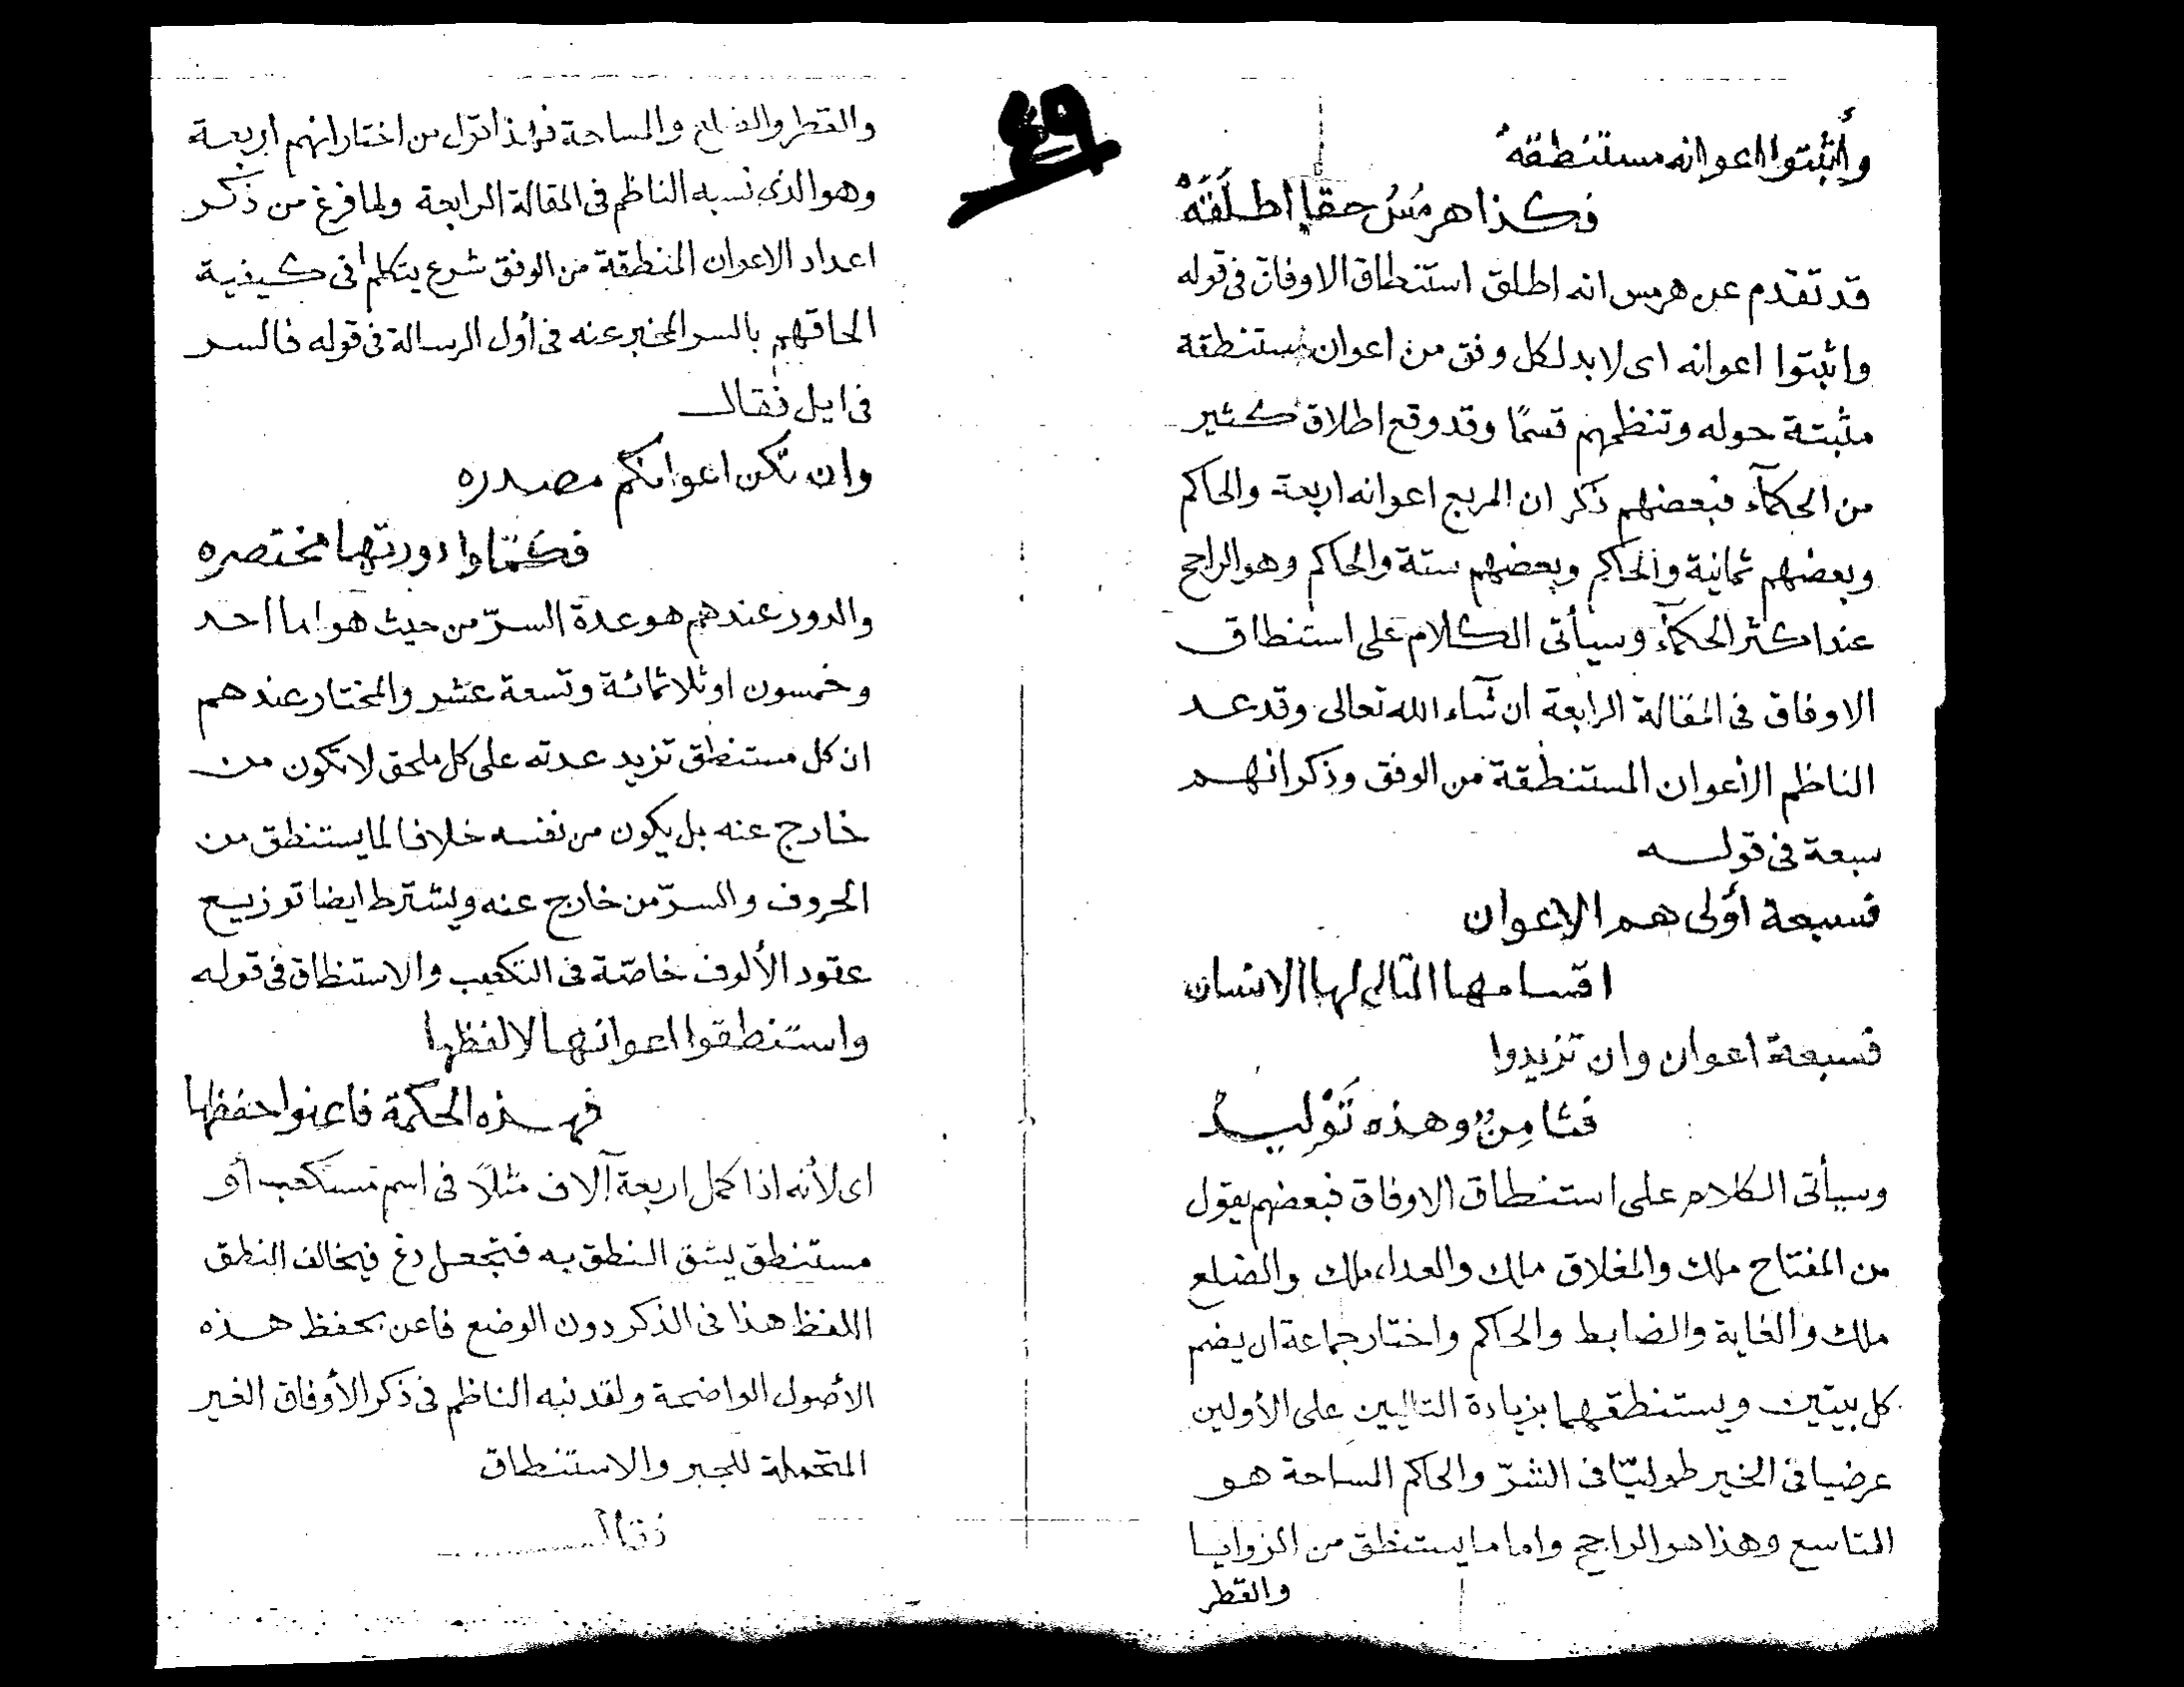 ٤٩
وأثبتوا اعوانه مستنطقه
فكذا هرمس حقا اطلقه
قد تقدم عن هرمس انه اطلق استنطاق الاوفاق فى قوله
واثبتوا اعوانه اى لابد لكل وفق من اعوان مستنطقة
مثبتة حوله وتنظمهم قسمًا وقد وقع اطلاق كثير
من الحكمآء فبعضهم ذكر ان المربع اعوانه اربعة والحاكم
وبعضهم ثمانية والحاكم وبعضهم ستة والحاكم وهو الراجح
عند اكثر الحكمآء وسيأتى الكلام على استنطاق
الاوفاق فى المقالة الرابعة ان شآء الله تعالى وقد عد
الناظم الأعوان المستنطقة من الوفق وذكر انهم
سبعة فى قوله
فسبعة أولى هم الاعوان
اقسامها التالى لها الانسان
فسبعة اعوان وان تزيدوا
فثامن وهذه توليد
وسيأتى الكلام على استنطاق الاوفاق فبعضهم يقول
من المفتاح ملك والمغلاق ملك والعدا، ملك والضلع
ملك والغاية والضابط والحاكم واختار جماعة ان يضم
كل بيتين ويستنطقهما بزيادة التاليين على الأولين
عرضيا فى الخير طوليّا فى الشرّ والحاكم المساحة هو
التاسع وهذا هو الراجح واما ما يستنطق من الزوايا
والقطر
والقطر والضلع والمساحة فهذا تؤل من اختار انهم اربعة
وهو الذى نسبه الناظم فى المقالة الرابعة ولما فرغ من ذكر
اعداد الاعوان المنطقة من الوفق شرع يتكلم فى كيفية
الحاقهم بالسر المخبر عنه فى أول الرسالة فى قوله فالسر
فى ايل فقال
وان تكن اعوانكم مصدره
فكملوا دورتها مختصره
والدور عندهم هو عدة السرّ من حيث هو اما احد
وخمسون او ثلاثمائة وتسعة عشر والمختار عندهم
ان كل مستنطق تزيد عدته على كل ملحق لا تكون من
خارج عنه بل يكون من نفسه خلافا لما يستنطق من
الحروف والسرّ من خارج عنه ويشترط ايضا توزيع
عقود الألوف خاصّة فى التكعيب والاستنطاق فى قوله
واستنطقوا اعوانها لا لفظها
فهذه الحكمة فاعنوا حفظها
اى لأنه اذا كمل اربعة آلاف مثلاً فى اسم مستكعب أو
مستنطق يشق النطق به فتجعل دغ فيخالف النطق
اللفظ هذا فى الذكر دون الوضع فاعن بحفظ هذه
الأصول الواضحة ولقد نبه الناظم فى ذكر الأوفاق الغير
المتحملة للجبر والاستنطاق
فقال